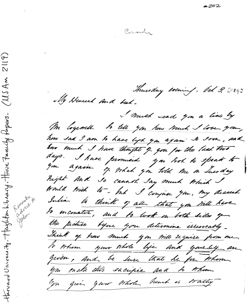 202
Thursday evening. Oct 2
My dearest and best.
I must send you a line by
Mr Cogswell to tell you how much I love you,
how sad I am to have left you again so soon, and
how much I have thought of you for the last two
days. I have promised you not to speak to
you again of what you told me on Tuesday
night and so cannot say much which I
would wish to. but I conjure you, my dearest
Julia to think of all that you will have
to encounter, and to look on both sides of
the picture before you determine
Think of how much you will require from me
To whom your whole life and
given, and be sure that he for whom
you make this sacrifice and to whom
you give your whole heart is worthy
Harvard University - Houghton Library - Howe Family Papers. (MS Am 2119)